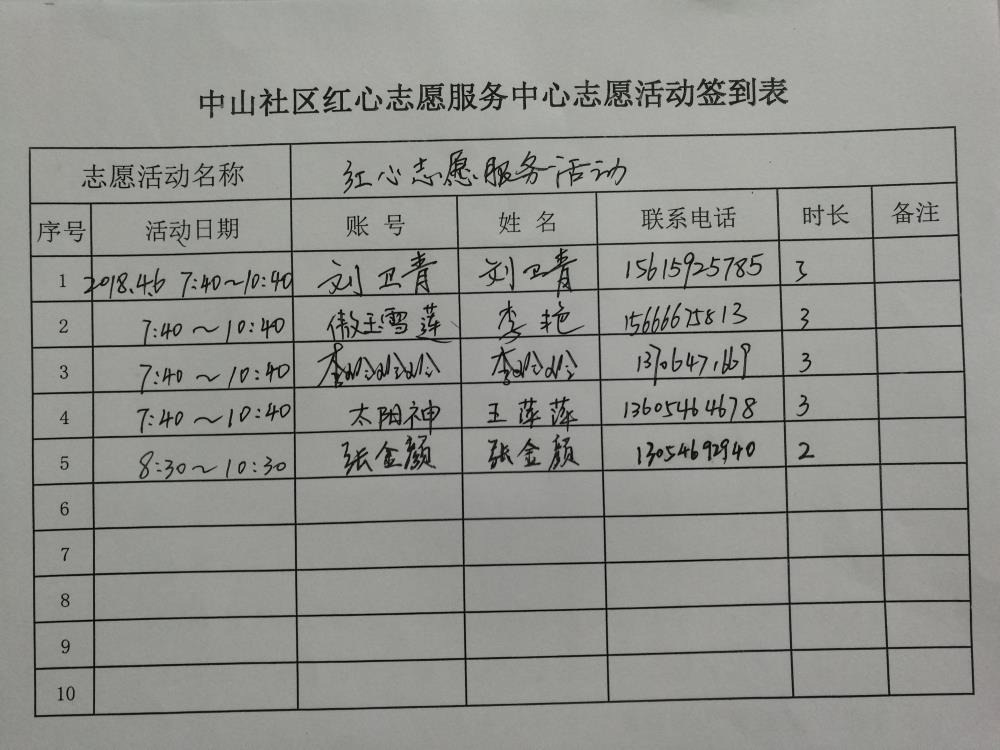 中山社区红心志愿服务中心志愿活动签到表
志愿活动名称 红心志愿服务活动
序号 活动日期 账号 姓名 联系电话 时长 备注
1 2018.4.6 7:40~10:40 刘卫青 刘卫青 15615925785 3
2 7:40~10:40 傲玉雪莲 李艳 15666675813 3
3 7:40~10:40 3
4 7:40~10:40 太阳神 王萍萍 13605464678 3
5 8:30~10:30 张金颜 张金颜 13054692940 2
6
7
8
9
10